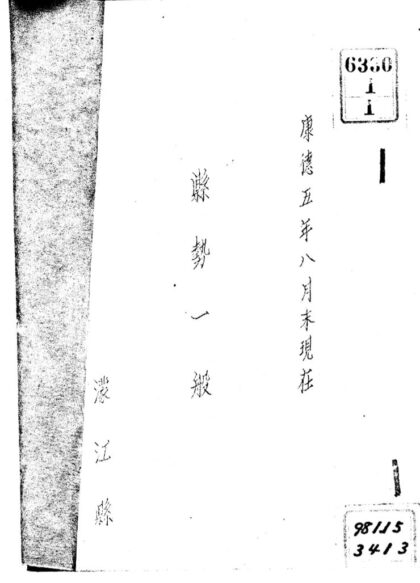 康德五年八月末現在
縣勢一般
濛江縣
1
1
98115
3413